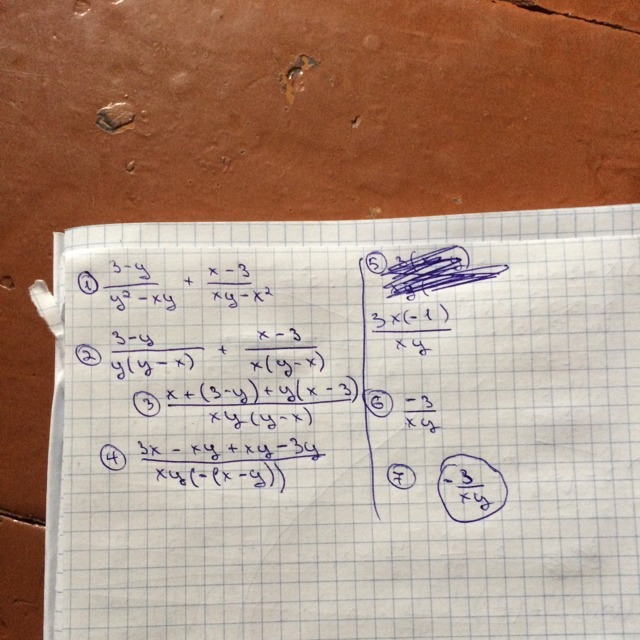 ① (3-y)/(y²-xy) + (x-3)/(xy-x²)
② (3-y)/(y(y-x)) + (x-3)/(x(y-x))
③ (x+(3-y)+y(x-3))/(xy(y-x))
④ (3x-xy+xy-3y)/(xy(-(x-y)))
⑤
(3x(-1))/(xy)
⑥ (-3)/(xy)
⑦ -3/(xy)